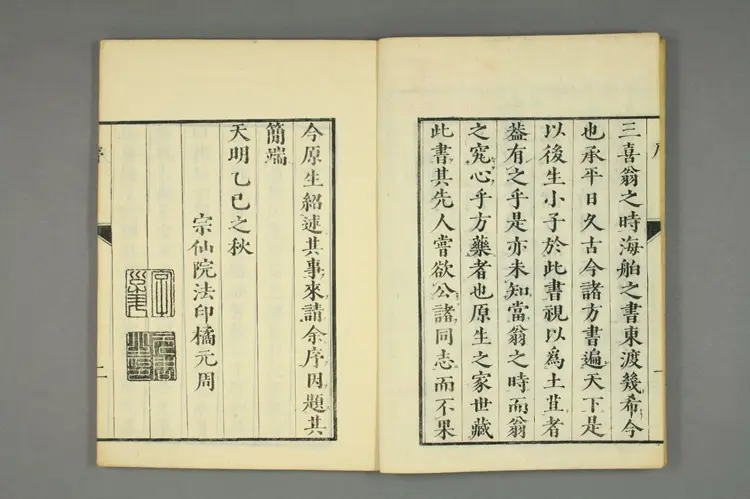 三喜翁之時海舶之書東渡幾希今
也承平日久古今諸方書遍天下是
以後生小子於此書視以爲土苴者
葢有之乎是亦未知當翁之時而翁
之究心乎方藥者也原生之家世藏
此書其先人嘗欲公諸同志而不果
今原生紹述其事來請余序因題其
簡端
天明乙巳之秋
宗仙院法印橘元周
二